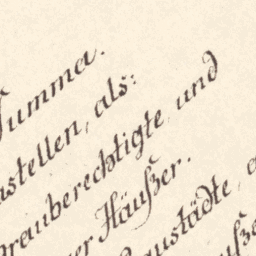 Summa.
stellen, als:
brauberechtigte, und
er Häußer.
baustädte,